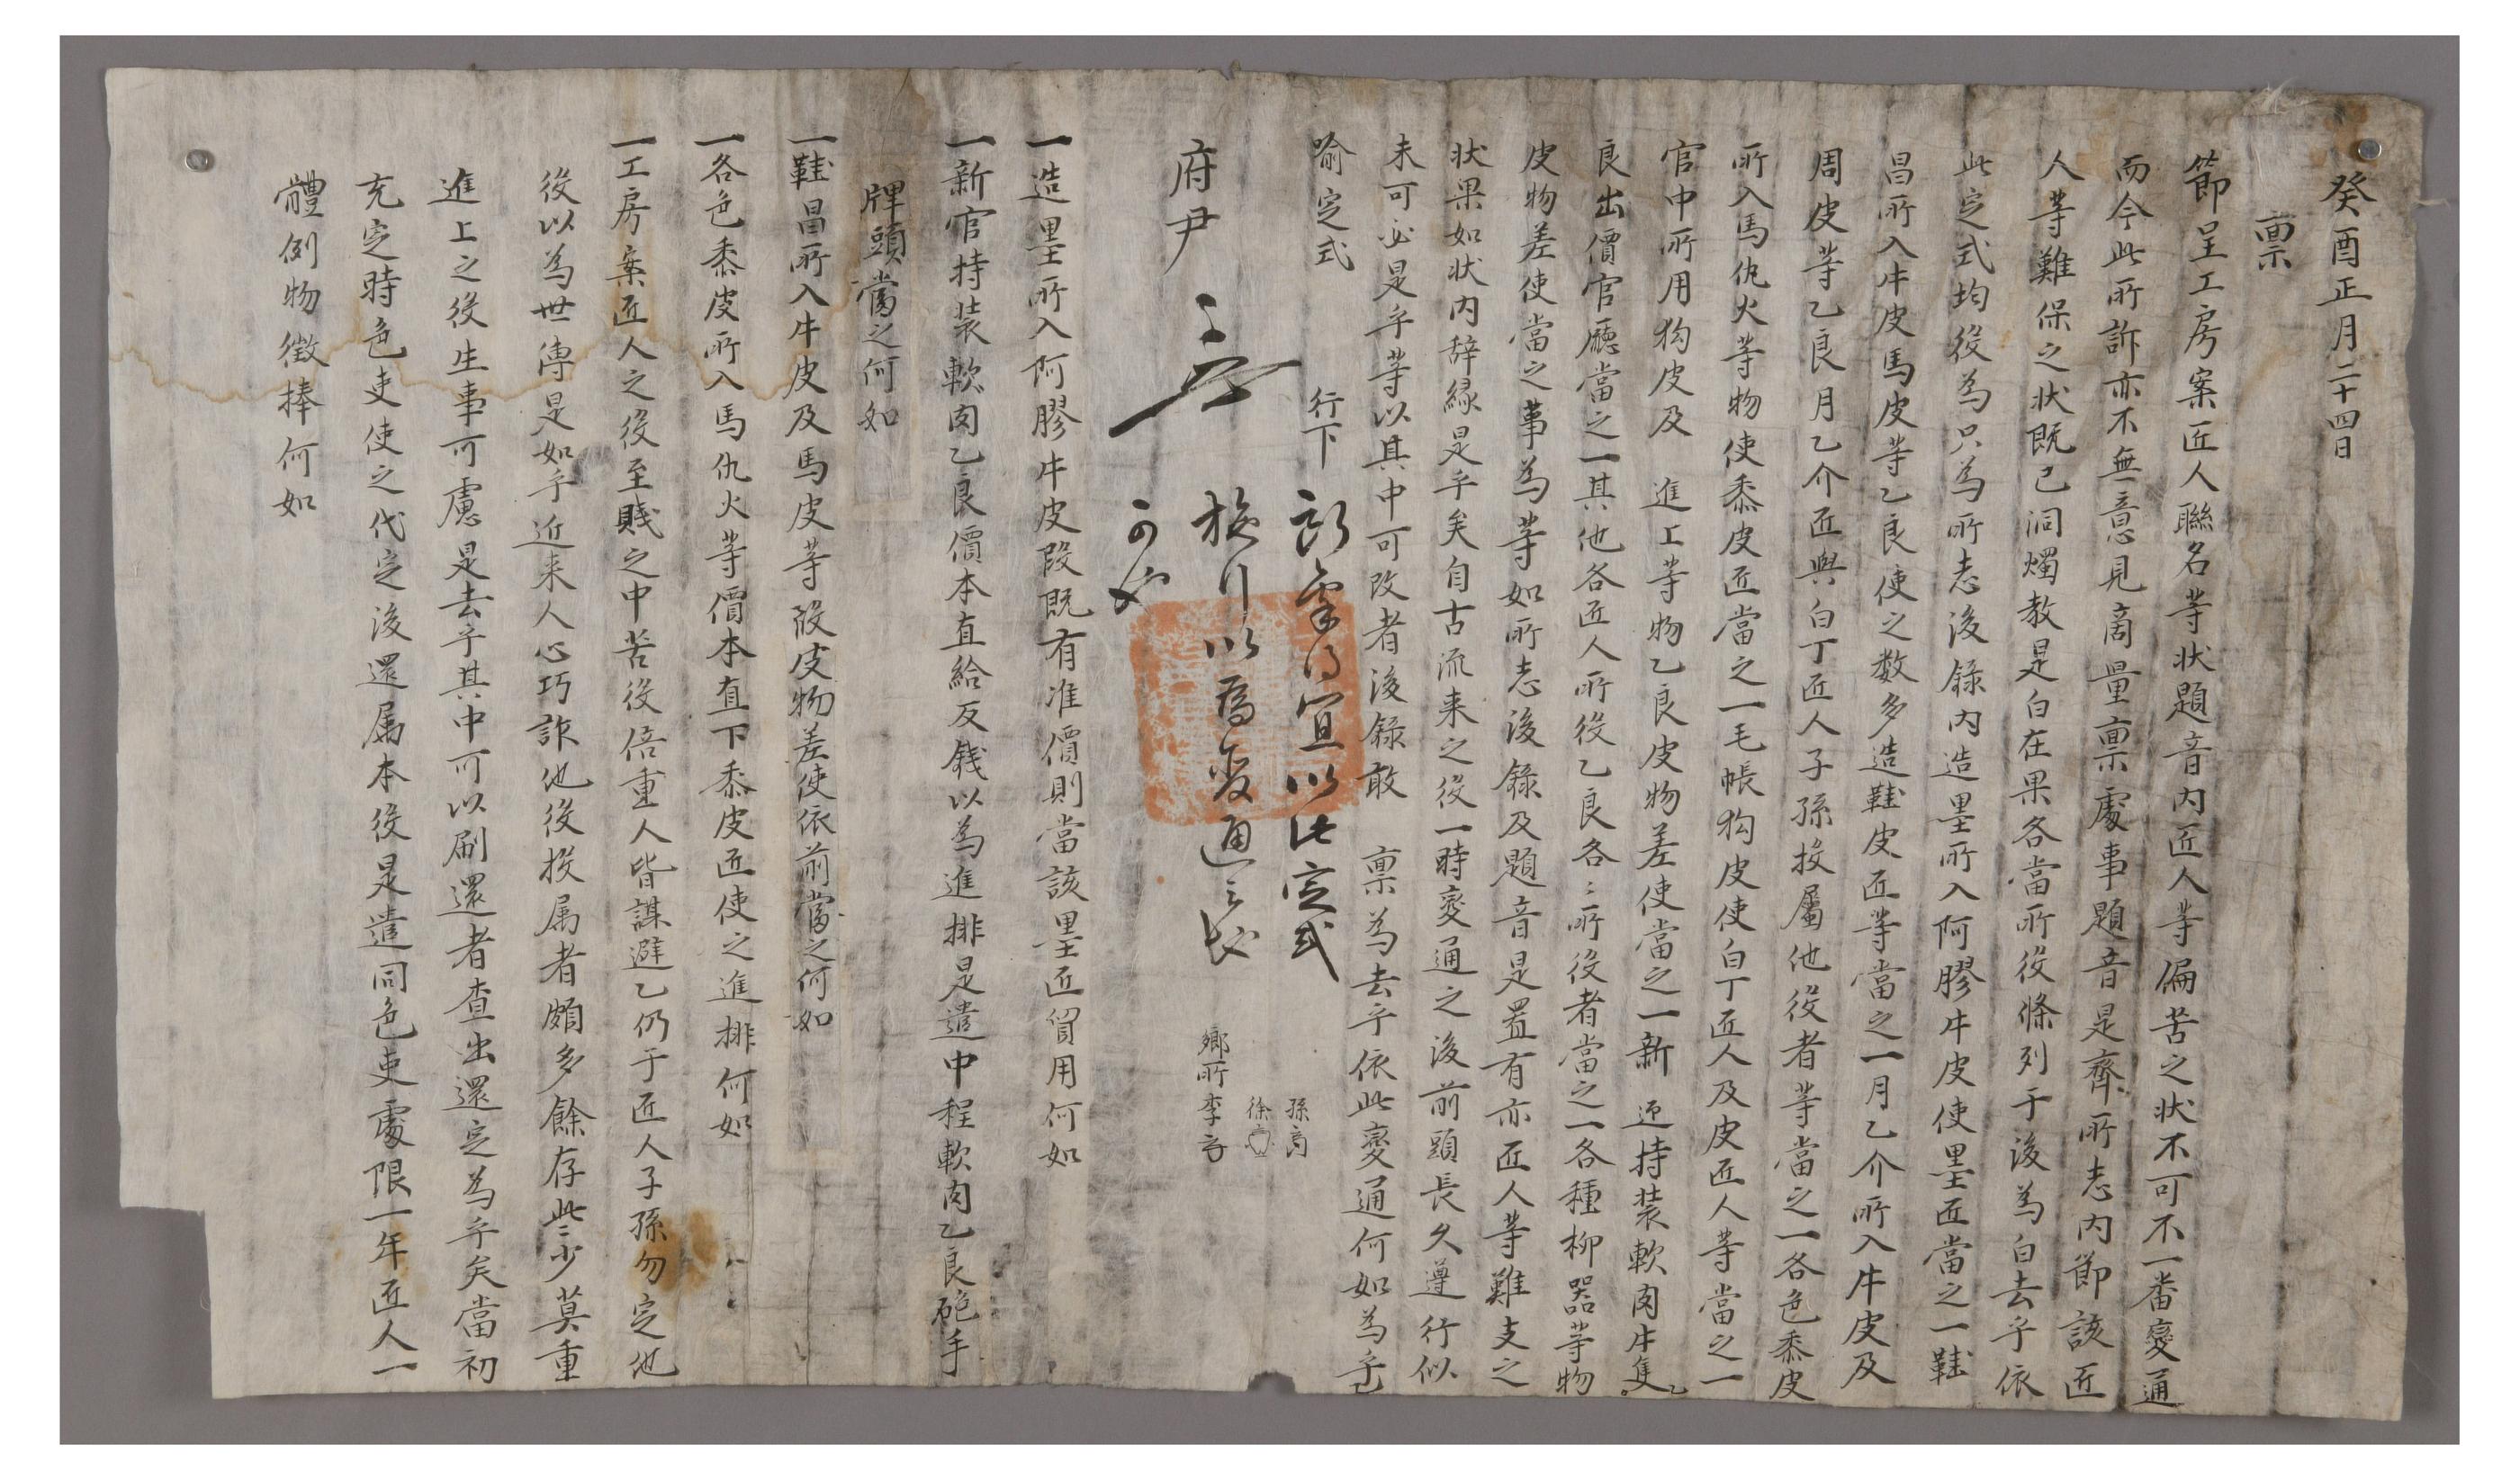 癸酉正月二十四日
稟
節呈工房案匠人聯名等狀題音內匠人等偏苦之狀不可不一番變通
而今此所訴亦不無意見商量稟處事題音是齊所志內節該匠
人等難保之狀既已洞燭教是白在果各當所役條列于後為白去乎依
此定式均役為只為所志後錄內造墨所入阿膠牛皮使墨匠當之一鞋
昌所入牛皮馬皮等乙良使之數多造鞋皮匠等當之一月乙介所入牛皮及
周皮等乙良月乙介匠與白丁匠人子孫投屬他役者等當之一各色黍皮
所入馬仇火等物使黍皮匠當之一毛帳狗皮使白丁匠人及皮匠人等當之一
官中所用狗皮及 進上等物乙良皮物差使當之一新 迎持裝軟肉牛隻乙
良出價官廳當之一其他各匠人所役乙良各〻所役者當之一各種柳器等物
皮物差使當之事為等如所志後錄及題音是置有亦匠人等難支之
狀果如狀內辞緣是乎矣自古流来之役一時變通之後前頭長久遵行似
未可必是乎等以其中可改者後錄敢 稟為去乎依此變通何如為乎
喻定式 行下
府尹
孫
徐
鄉所李
宜以此定式
施行以為變通之
一造墨所入阿膠牛皮段既有准價則當該墨匠貿用何如
一新官持裝軟肉乙良價本直給反錢以為進排是遣中程軟肉乙良砲手
牌頭當之何如
一鞋昌所入牛皮及馬皮等段皮物差使依前當之何如
一各色黍皮所入馬仇火等價本直下黍皮匠使之進排何如
一工房案匠人之役至賤之中苦役倍重人皆謀避乙仍于匠人子孫勿定他
役以為世傳是如乎近来人心巧詐他役投属者頗多餘存些少莫重
進上之役生事可慮是去乎其中可以刷還者查出還定為乎矣當初
充定時色吏使之代定後還属本役是遣同色吏處限一年匠人一
體例物徵捧何如